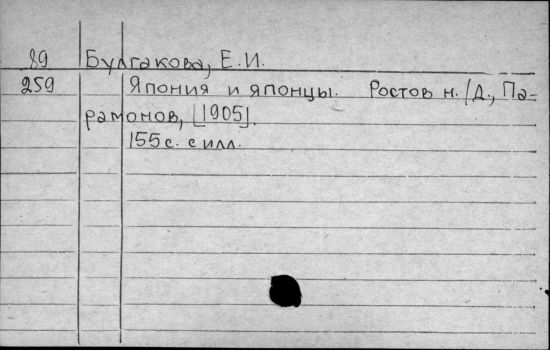 89 Булгакова, Е.И.
259 Япония и японцы. Ростов н./Д., Па-
рамонов, [1905].
155 с. с илл.